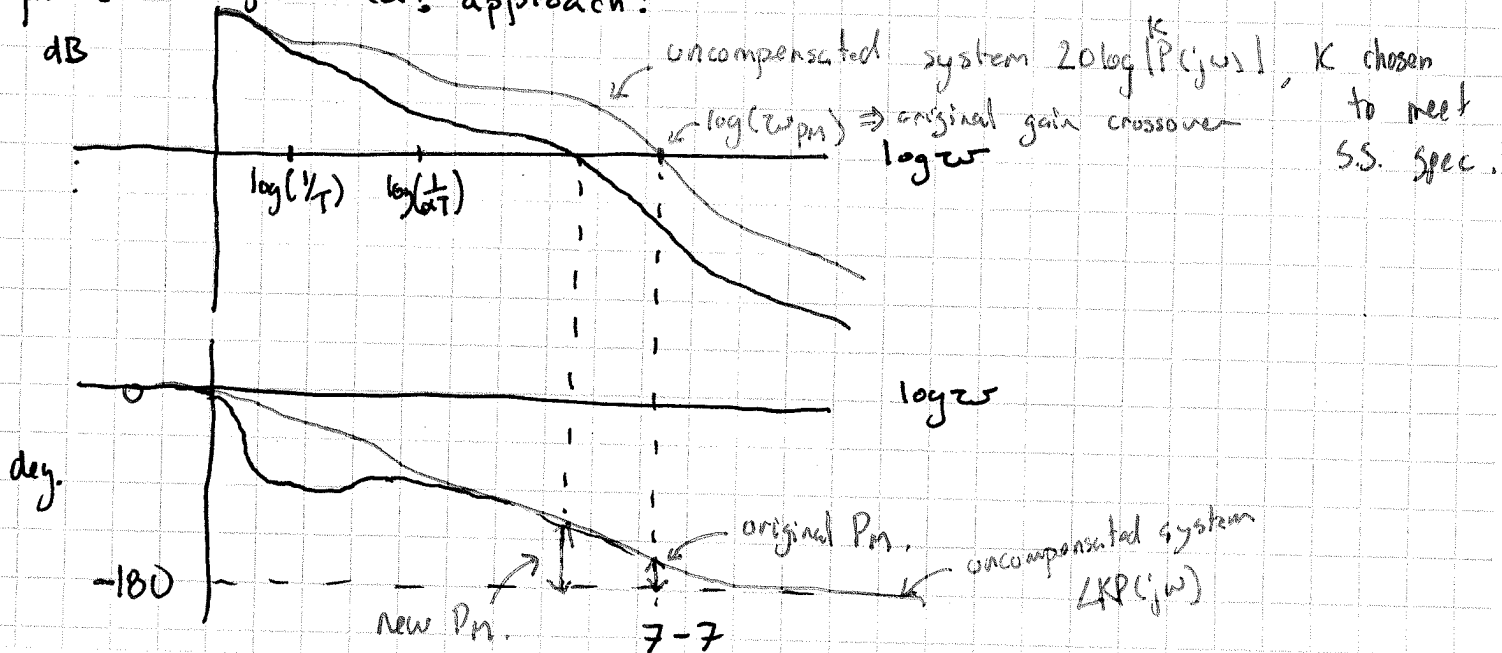 approach:
dB
uncompensated system 20log|KP(jω)|, K chosen
to meet
S.S. spec.
log(ω_PM) ⇒ original gain crossover
log ω
log(1/T) log(1/αT)
0
log ω
deg.
original PM.
uncompensated system
∠KP(jω)
-180
new PM.
7-7